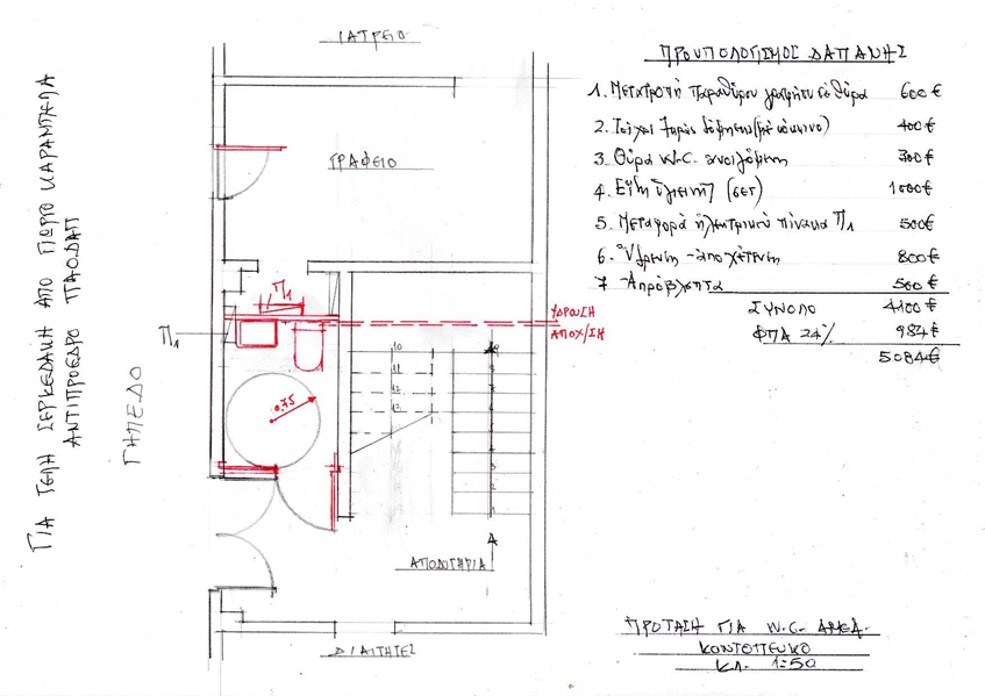 ΙΑΤΡΕΙΟ
ΓΡΑΦΕΙΟ
Π1
Π1
ΥΔΡΕΥΣΗ
ΑΠΟΧ/ΣΗ
0.75
10
11
12
13
ΑΠΟΔΥΤΗΡΙΑ
ΔΙΑΙΤΗΤΕΣ
ΓΗΠΕΔΟ
ΓΙΑ ΓΕΛΗ ΣΕΡΚΕΔΑΚΗ ΑΠΟ ΓΙΩΡΓΟ ΚΑΡΑΜΠΕΛΑ
ΑΝΤΙΠΡΟΕΔΡΟ ΠΑΟΔΑΠ
ΠΡΟΥΠΟΛΟΓΙΣΜΟΣ ΔΑΠΑΝΗΣ
1. Μετατροπή παραθύρου γραφείου σε θύρα 600 €
2. Τοίχοι ξηράς δόμησης (με κόκκινο) 400 €
3. Θύρα W.C. ανοιγόμενη 300 €
4. Είδη υγιεινής (σετ) 1000 €
5. Μεταφορά ηλεκτρικού πίνακα Π1 500€
6. Ύδρευση - αποχέτευση 800€
7 - Απρόβλεπτα 500 €
ΣΥΝΟΛΟ 4100 €
ΦΠΑ 24% 984€
5084€
ΠΡΟΤΑΣΗ ΓΙΑ W.C. ΑΜΕΑ.
ΚΟΝΤΟΠΕΥΚΟ
ΚΛ. 1:50